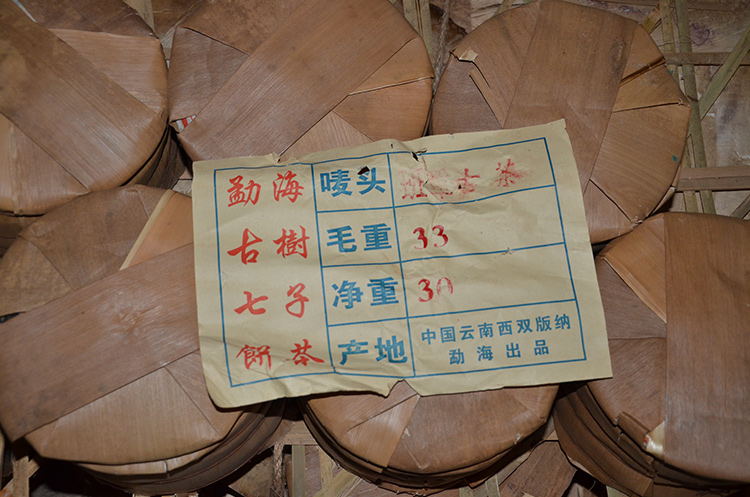 勐海
古樹
七子
餅茶
唛头 班 古 茶
毛重 33
净重 30
产地 中国云南西双版纳
勐海出品